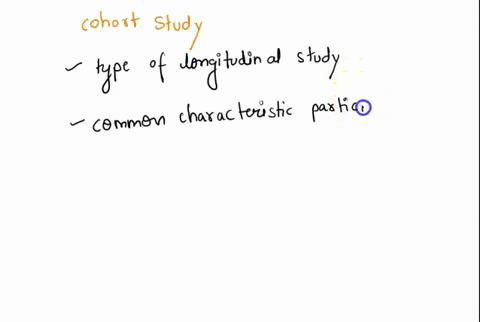 cohort study
✓ type of longitudinal study
✓ common characteristic partic